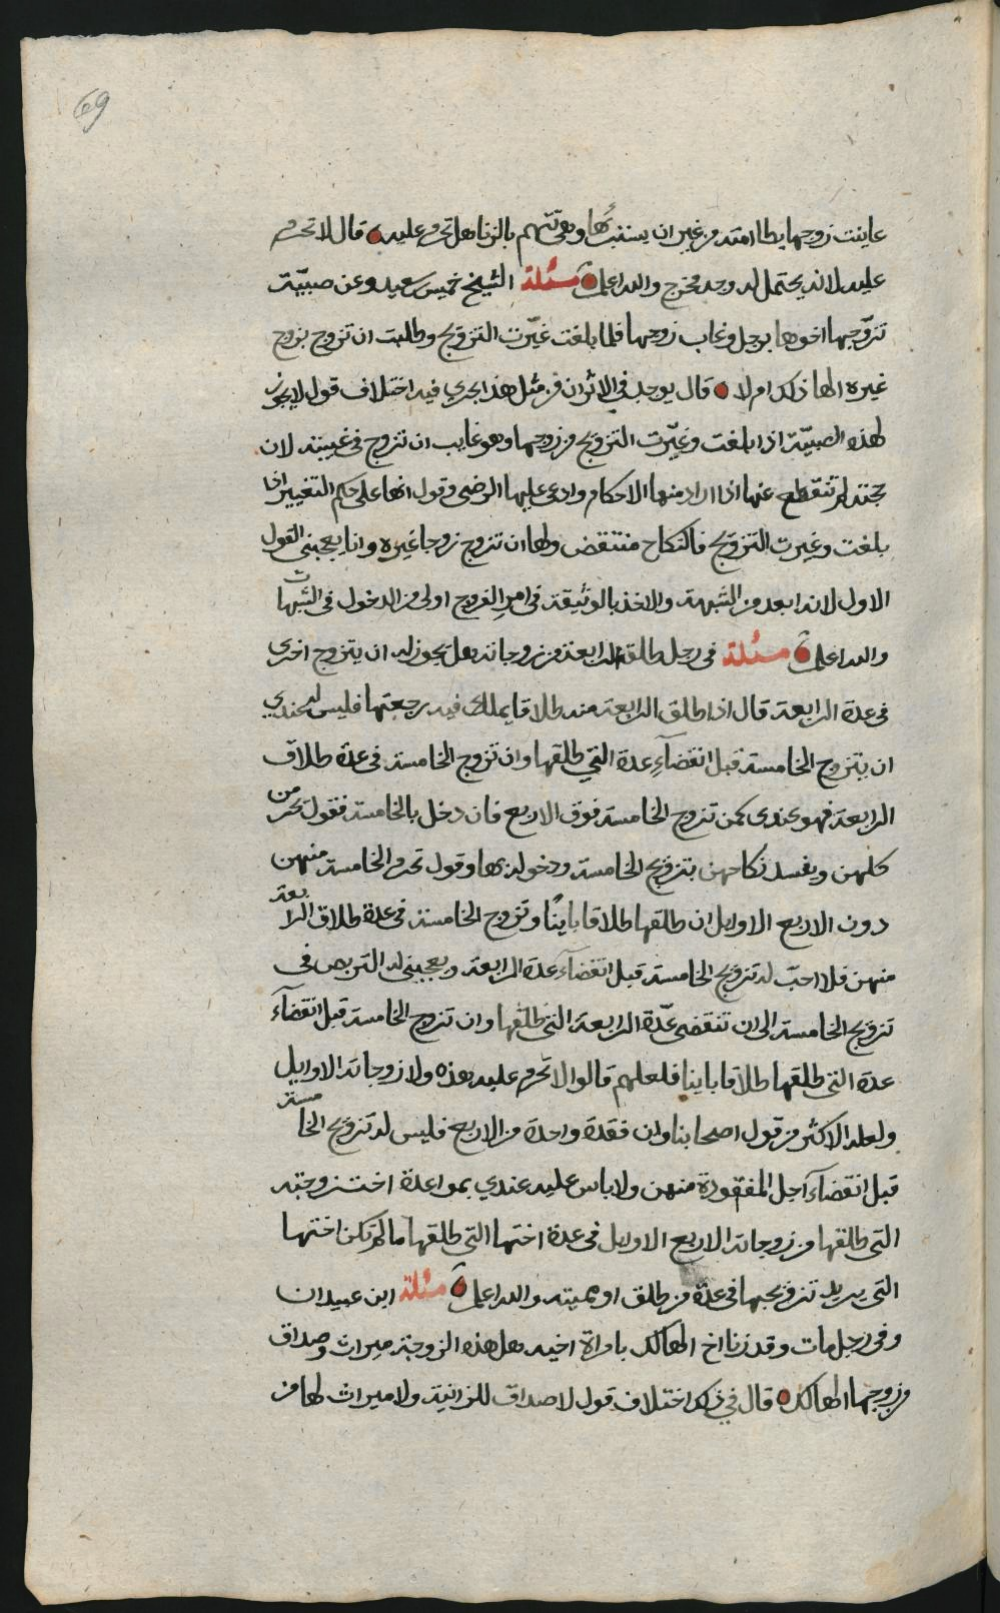 69
عاينت زوجها يطا امته من غير ان يستنبئها وهو تتهم بالزنا هل تحرم عليه قال لا تحرم
عليه لانه يحتمل له وجه مخرج والله اعلم مسئلة الشيخ خميس بن سعيد وعن صبيّة
تزوّجها اخوها برجل وغاب زوجها فلما بلغت غيّرت التزويج وطلبت ان تزوج بزوج
غيره الها ذلك ام لا قال يوجد في الاثر ان في مثل هذا يجري فيه اختلاف قول لا يجوز
لهذه الصبيّة اذا بلغت وغيّرت التزويج من زوجها وهو غايب ان تزوج في غيبته لان
حجته لم تنقطع عنها اذا اراد منها الاحكام وادعى عليها الرضى وقول انها على حكم التغيير اذا
بلغت وغيرت التزويج فالنكاح منتقض ولها ان تزوج زوجا غيره وانا يعجبني القول
الاول لانه ابعد من الشبهة والاخذ بالوثيقة في امر الفروج اولى من الدخول في الشبهات
والله اعلم مسئلة في رجل طلق الرابعة من زوجاته هل يجوز له ان يتزوج اخرى
في عدة الرابعة قال اذا طلق الرابعة منه طلاقا يملك فيه رجعتها فليس له عندي
ان يتزوج الخامسة قبل انقضآء عدة التي طلقها وان تزوج الخامسة في عدة طلاق
الرابعة فهو عندي كمن تزوج الخامسة فوق الاربع فان دخل بالخامسة فقول تحرمن
كلهن ويفسد نكاحهن بتزويج الخامسة ودخوله بها وقول تحرم الخامسة منهن
دون الاربع الاوايل ان طلقها طلاقا باينًا وتزوج الخامسة في عدة طلاق الرابعة
منهن فلا احبّ له تزويج الخامسة قبل انقضآء عدة الرابعة ويعجبني له التربص في
تزويج الخامسة الى ان تنقضي عدّة الرابعة التي طلقها وان تزوج الخامسة قبل انقضآء
عدة التي طلقها طلاقا باينا فلعلهم قالوا لا تحرم عليه هذه ولا زوجاته الاوايل
ولعله الاكثر من قول اصحابنا وان فقدة واحدة من الاربع فليس له تزويج الخامسة
قبل انقضآء اجل المفقودة منهن ولا باس عليه عندي بمواعدة اخت زوجته
التي طلقها من زوجاته الاربع الاوايل في عدة اختها التي طلقها ما لم تكن اختها
التي يريد تزويجها في عدة من طلق او مميتة والله اعلم مسئلة ابن عبيدان
وفي رجل مات وقد زنا اخ الهالك بامراة اخيه هل لهذه الزوجة ميراث وصداق
من زوجها الهالك قال في ذلك اختلاف قول لا صداق للزانية ولا ميراث لها من